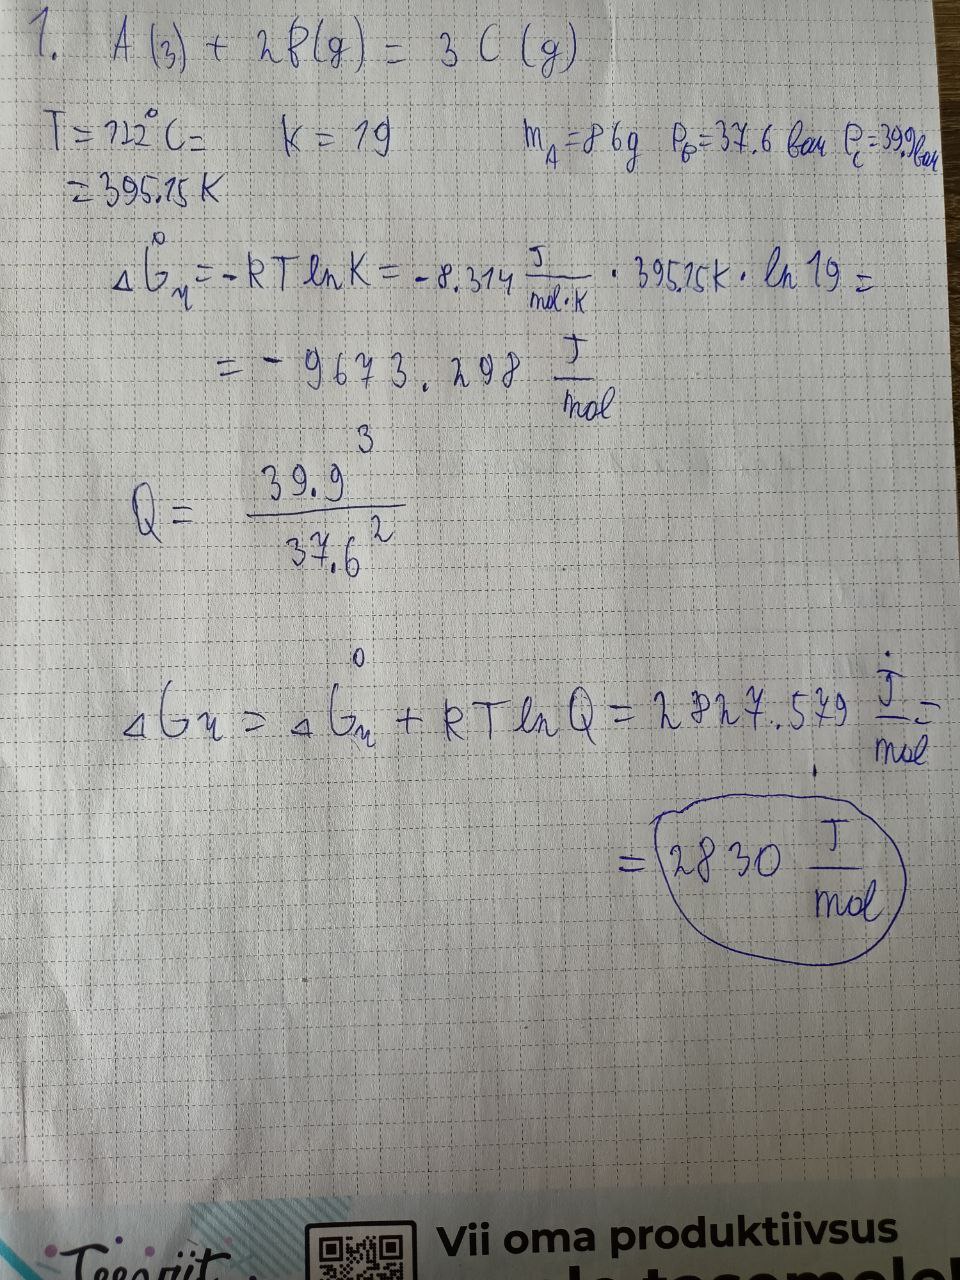 1. A (з) + 2B(g) = 3 C (g)
T = 122°C = K = 19 m_A = 86g P_B = 37.6 bar P_C = 39.9 bar
= 395.15 K
ΔG°_r = -RT ln K = -8.314 J/mol·K · 395.15K · ln 19 =
= -9673.298 J/mol
Q = 39.9³/37.6²
ΔG_r = ΔG°_r + RT ln Q = 2827.579 J/mol =
= 2830 J/mol
Vii oma produktiivsus